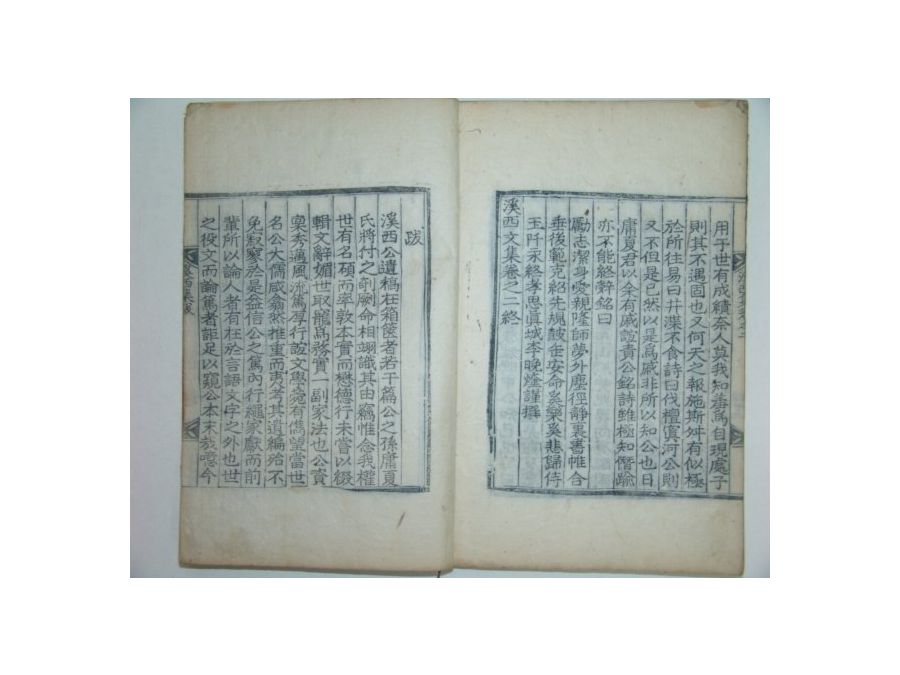 用于世有成績奈人莫我知善爲自現處子
則其不遇固也又何天之報施斯舛有似極
於所往易曰井渫不食詩曰伐檀寘河公則
又不但是已然以是爲戚非所以知公也日
庸夏君以余有戚誼責公銘詩雖極知僭踰
亦不能終辭銘曰
勵志潔身愛親隆師夢外塵徑靜裏書帷合
垂後範克紹先規皷缶安命奚樂奚悲歸侍
玉阡永終孝思眞城李晩煃謹撰
溪西文集卷之二終
跋
溪西公遺稿在箱篋者若干篇公之孫庸夏
氏將付之剞劂命相翊識其由竊惟念我權
世有名碩而率敦本實而懋德行未嘗以綴
輯文辭媚世取寵爲務實一副家法也公賁
稟秀邁風流篤厚行誼文學竟有儁望當世
名公大儒咸翕然推重而夷考其遺編殆不
免寂寥於是益信公之篤內行繩家獻而前
輩所以論人者有在於言語文字之外也世
之役文而論篤者詎足以窺公本末哉噫今